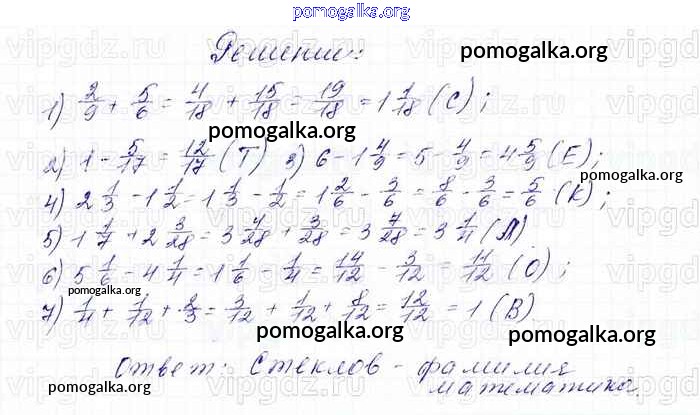 pomogalka.org
Решение:
pomogalka.org
1) 2/9 + 5/6 = 4/18 + 15/18 = 19/18 = 1 1/18 (С);
pomogalka.org
2) 1 - 5/17 = 12/17 (Т) 3) 6 - 1 4/9 = 5 - 4/9 = 4 5/9 (Е);
pomogalka.org
4) 2 1/3 - 1 1/2 = 1 1/3 - 1/2 = 1 2/6 - 3/6 = 8/6 - 3/6 = 5/6 (К);
pomogalka.org
5) 1 1/7 + 2 3/28 = 3 4/28 + 3/28 = 3 7/28 = 3 1/4 (Л)
6) 5 1/6 - 4 1/4 = 1 1/6 - 1/4 = 14/12 - 3/12 = 11/12 (О);
pomogalka.org
7) 1/4 + 1/12 + 2/3 = 3/12 + 1/12 + 8/12 = 12/12 = 1 (В).
pomogalka.org
pomogalka.org
Ответ: Стеклов - фамилия
математика.
pomogalka.org
pomogalka.org